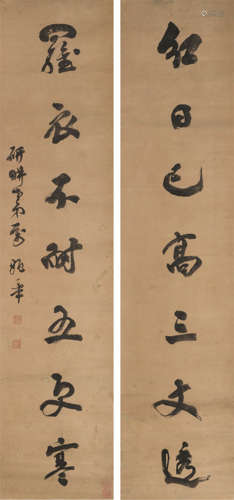 紅日已高三丈透
羅衣不耐五更寒
研畊